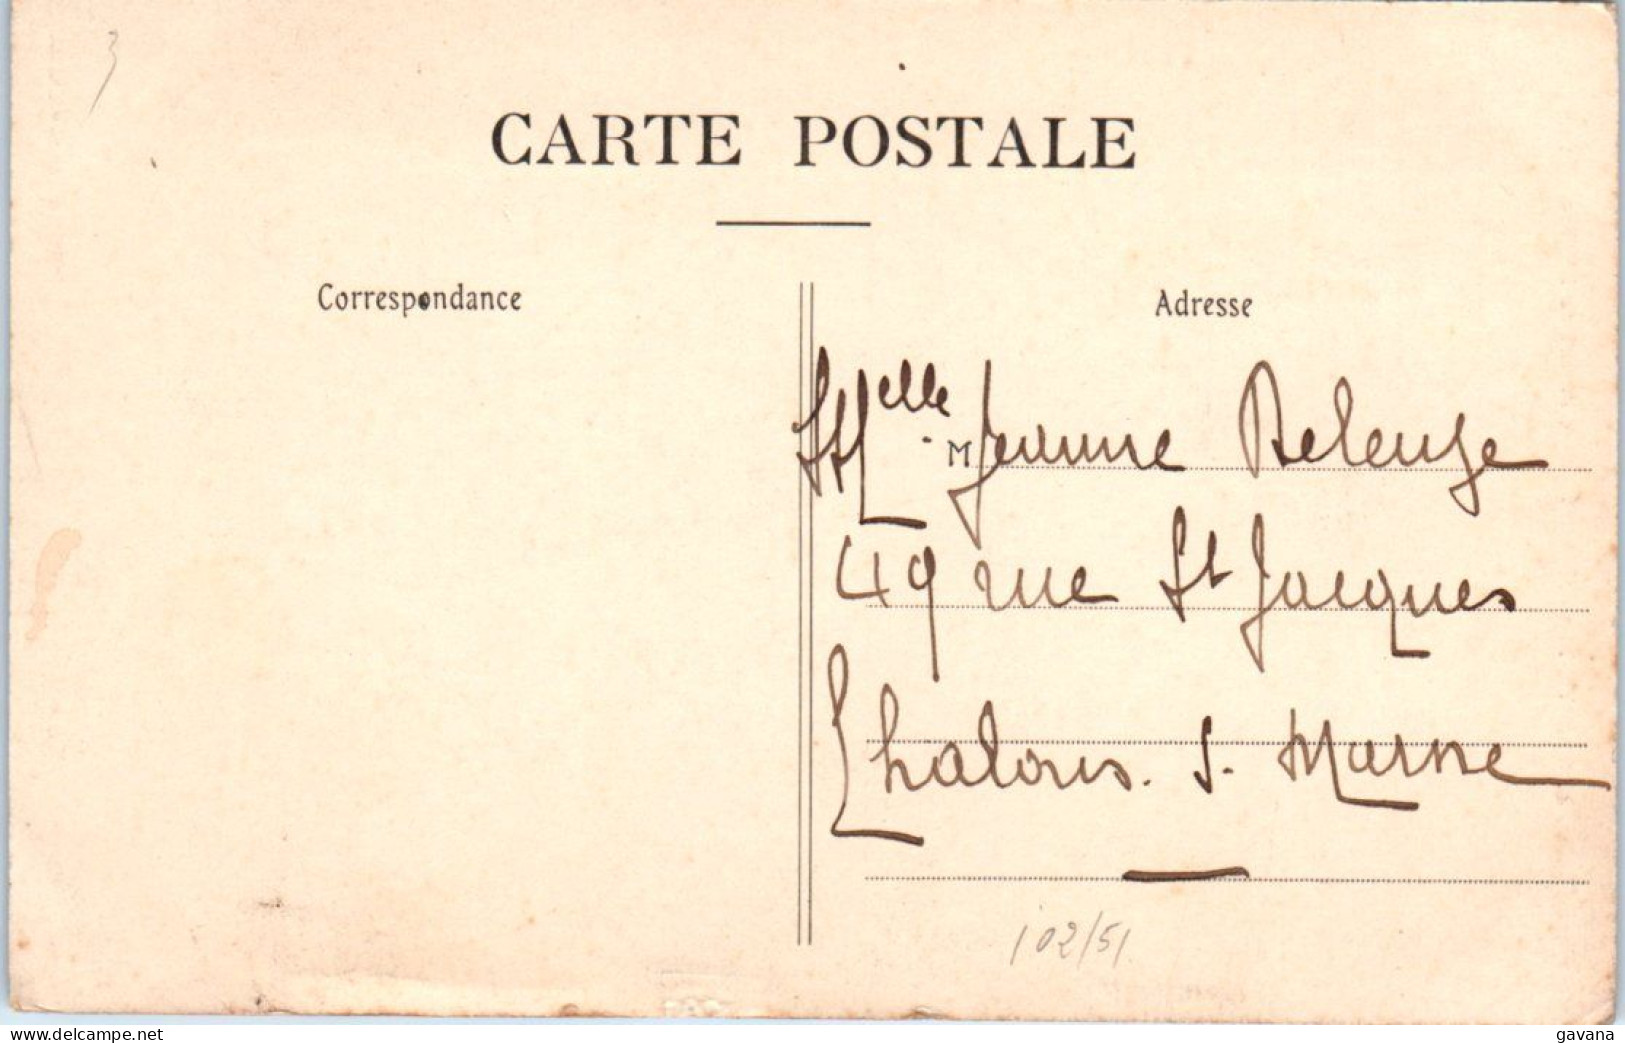 3
CARTE POSTALE
Correspondance
Adresse
Melle M Jeanne Deleuze
49 rue St Jacques
Chalons. s. Marne
102/51
https://www.delcampe.net
gavana